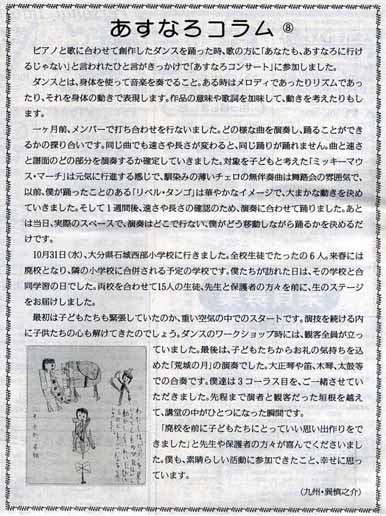 あすなろコラム ⑧
ピアノと歌に合わせて創作したダンスを踊った時、歌の方に「あなたも、あすなろに行け
るじゃない」と言われたひと言がきっかけで「あすなろコンサート」に参加しました。
ダンスとは、身体を使って音楽を奏でること。ある時はメロディであったりリズムであっ
たり、それを身体の動きで表現します。作品の意味や歌詞を加味して、動きを考えたりもし
ます。
一ヶ月前、メンバーで打ち合わせを行ないました。どの様な曲を演奏し、踊ることができ
るかの探り合いです。同じ曲でも速さや長さが変わると、同じ踊りが踊れません。曲と速さ
と譜面のどの部分を演奏するか確定していきました。対象を子どもと考え「ミッキーマウ
ス・マーチ」は元気に行進する感じで、馴染みの薄いチェロの無伴奏曲は舞踏会の雰囲気で、
以前、僕が踊ったことのある「リベル・タンゴ」は華やかなイメージで、大まかな動きを決め
ていきました。そして1週間後、速さや長さの確認のため、演奏に合わせて踊りました。あと
は当日、実際のスペースで、演奏はどこで行ない、僕がどう移動しながら踊るかを決めるだ
けです。
10月31日(水)、大分県石城西部小学校に行きました。全校生徒でたったの6人。来春には
廃校となり、隣の小学校に合併される予定の学校です。僕たちが訪れた日は、その学校と合
同学習の日でした。両校を合わせて15人の生徒、先生と保護者の方々を前に、生のステージ
をお届けしました。
最初は子どもたちも緊張していたのか、重い空気の中でのスタートです。演技を続ける内
に子供たちの心も解けてきたのでしょう。ダンスのワークショップ時には、観客全員が立っ
ていました。最後は、子どもたちからお礼の気持ちを込
めた「荒城の月」の演奏でした。大正琴や笛、木琴、太鼓等
での合奏です。僕達は3コーラス目を、ご一緒させてい
ただきました。先程まで演者と観客だった垣根を越え
て、講堂の中がひとつになった瞬間です。
「廃校を前に子どもたちにとっていい思い出作りをで
きました」と先生や保護者の方々が喜んでくださいまし
た。僕も、素晴らしい活動に参加できたこと、幸せに思っ
ています。
(九州・巽慎之介)